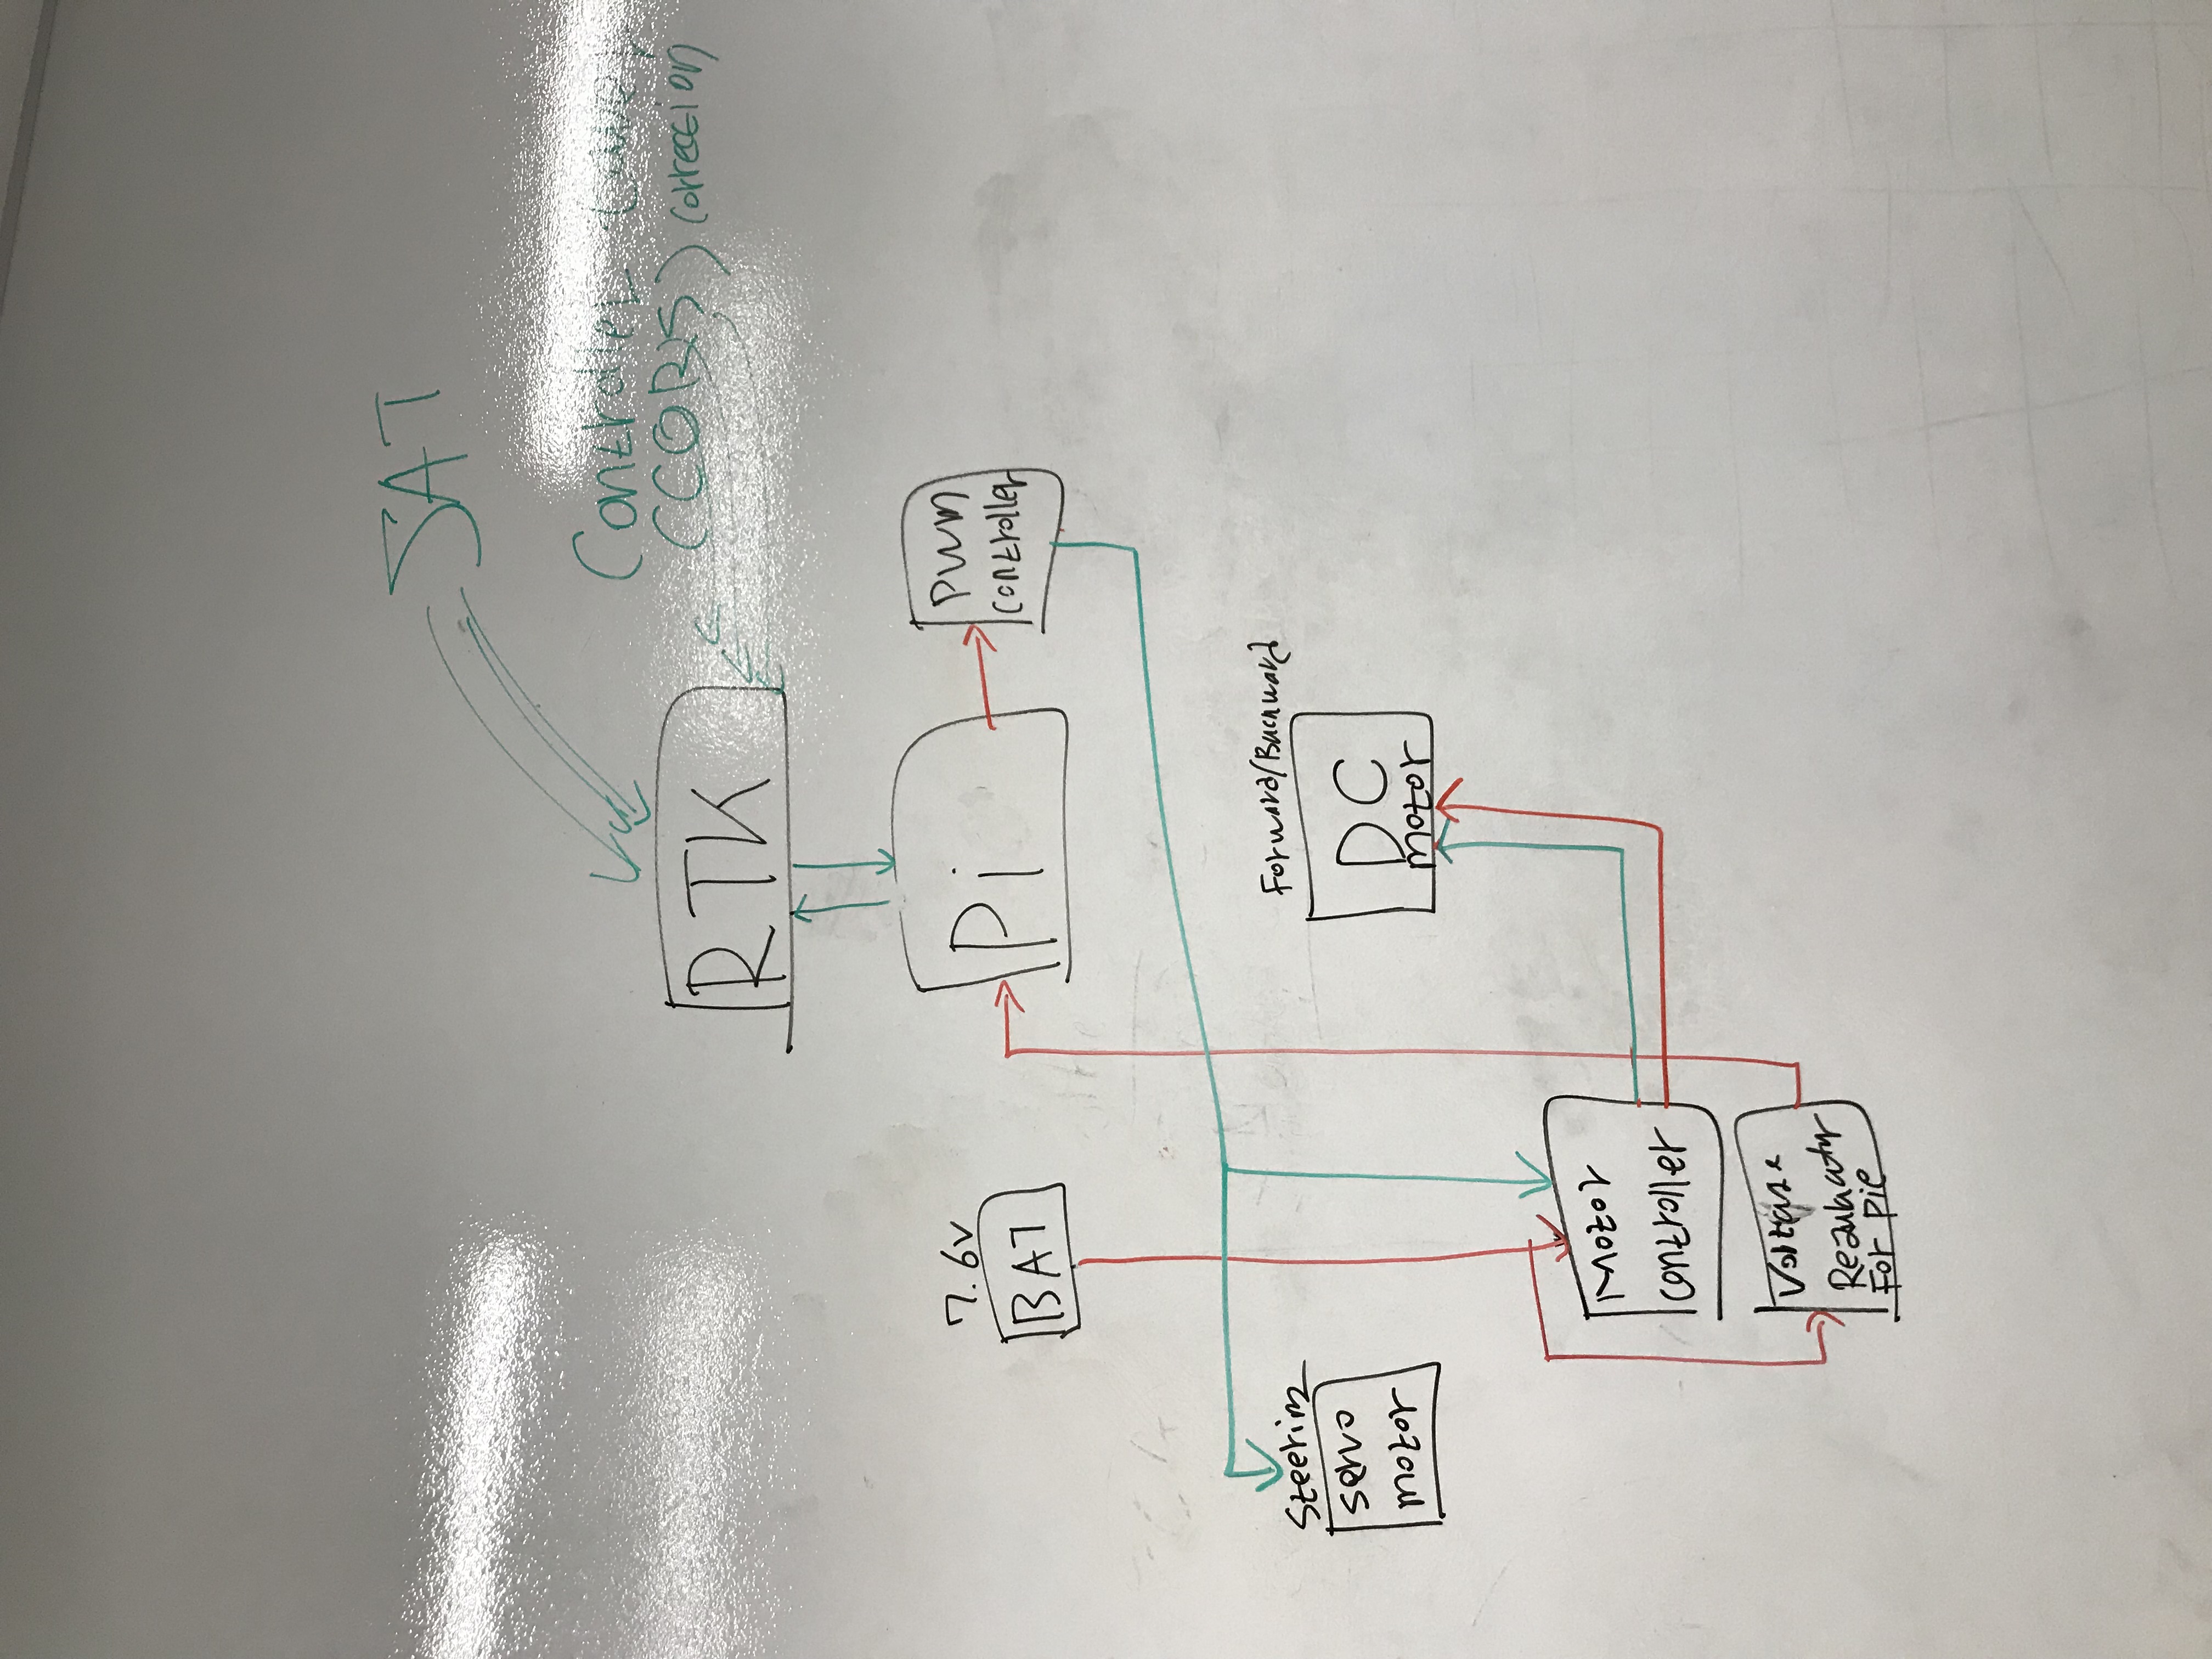 SAT
Controller
(CORS) correction
RTK
Pi
PWM
controller
7.6V
BAT
Steering
servo
motor
Forward/Backward
DC
motor
Motor
controller
Voltage
For pie